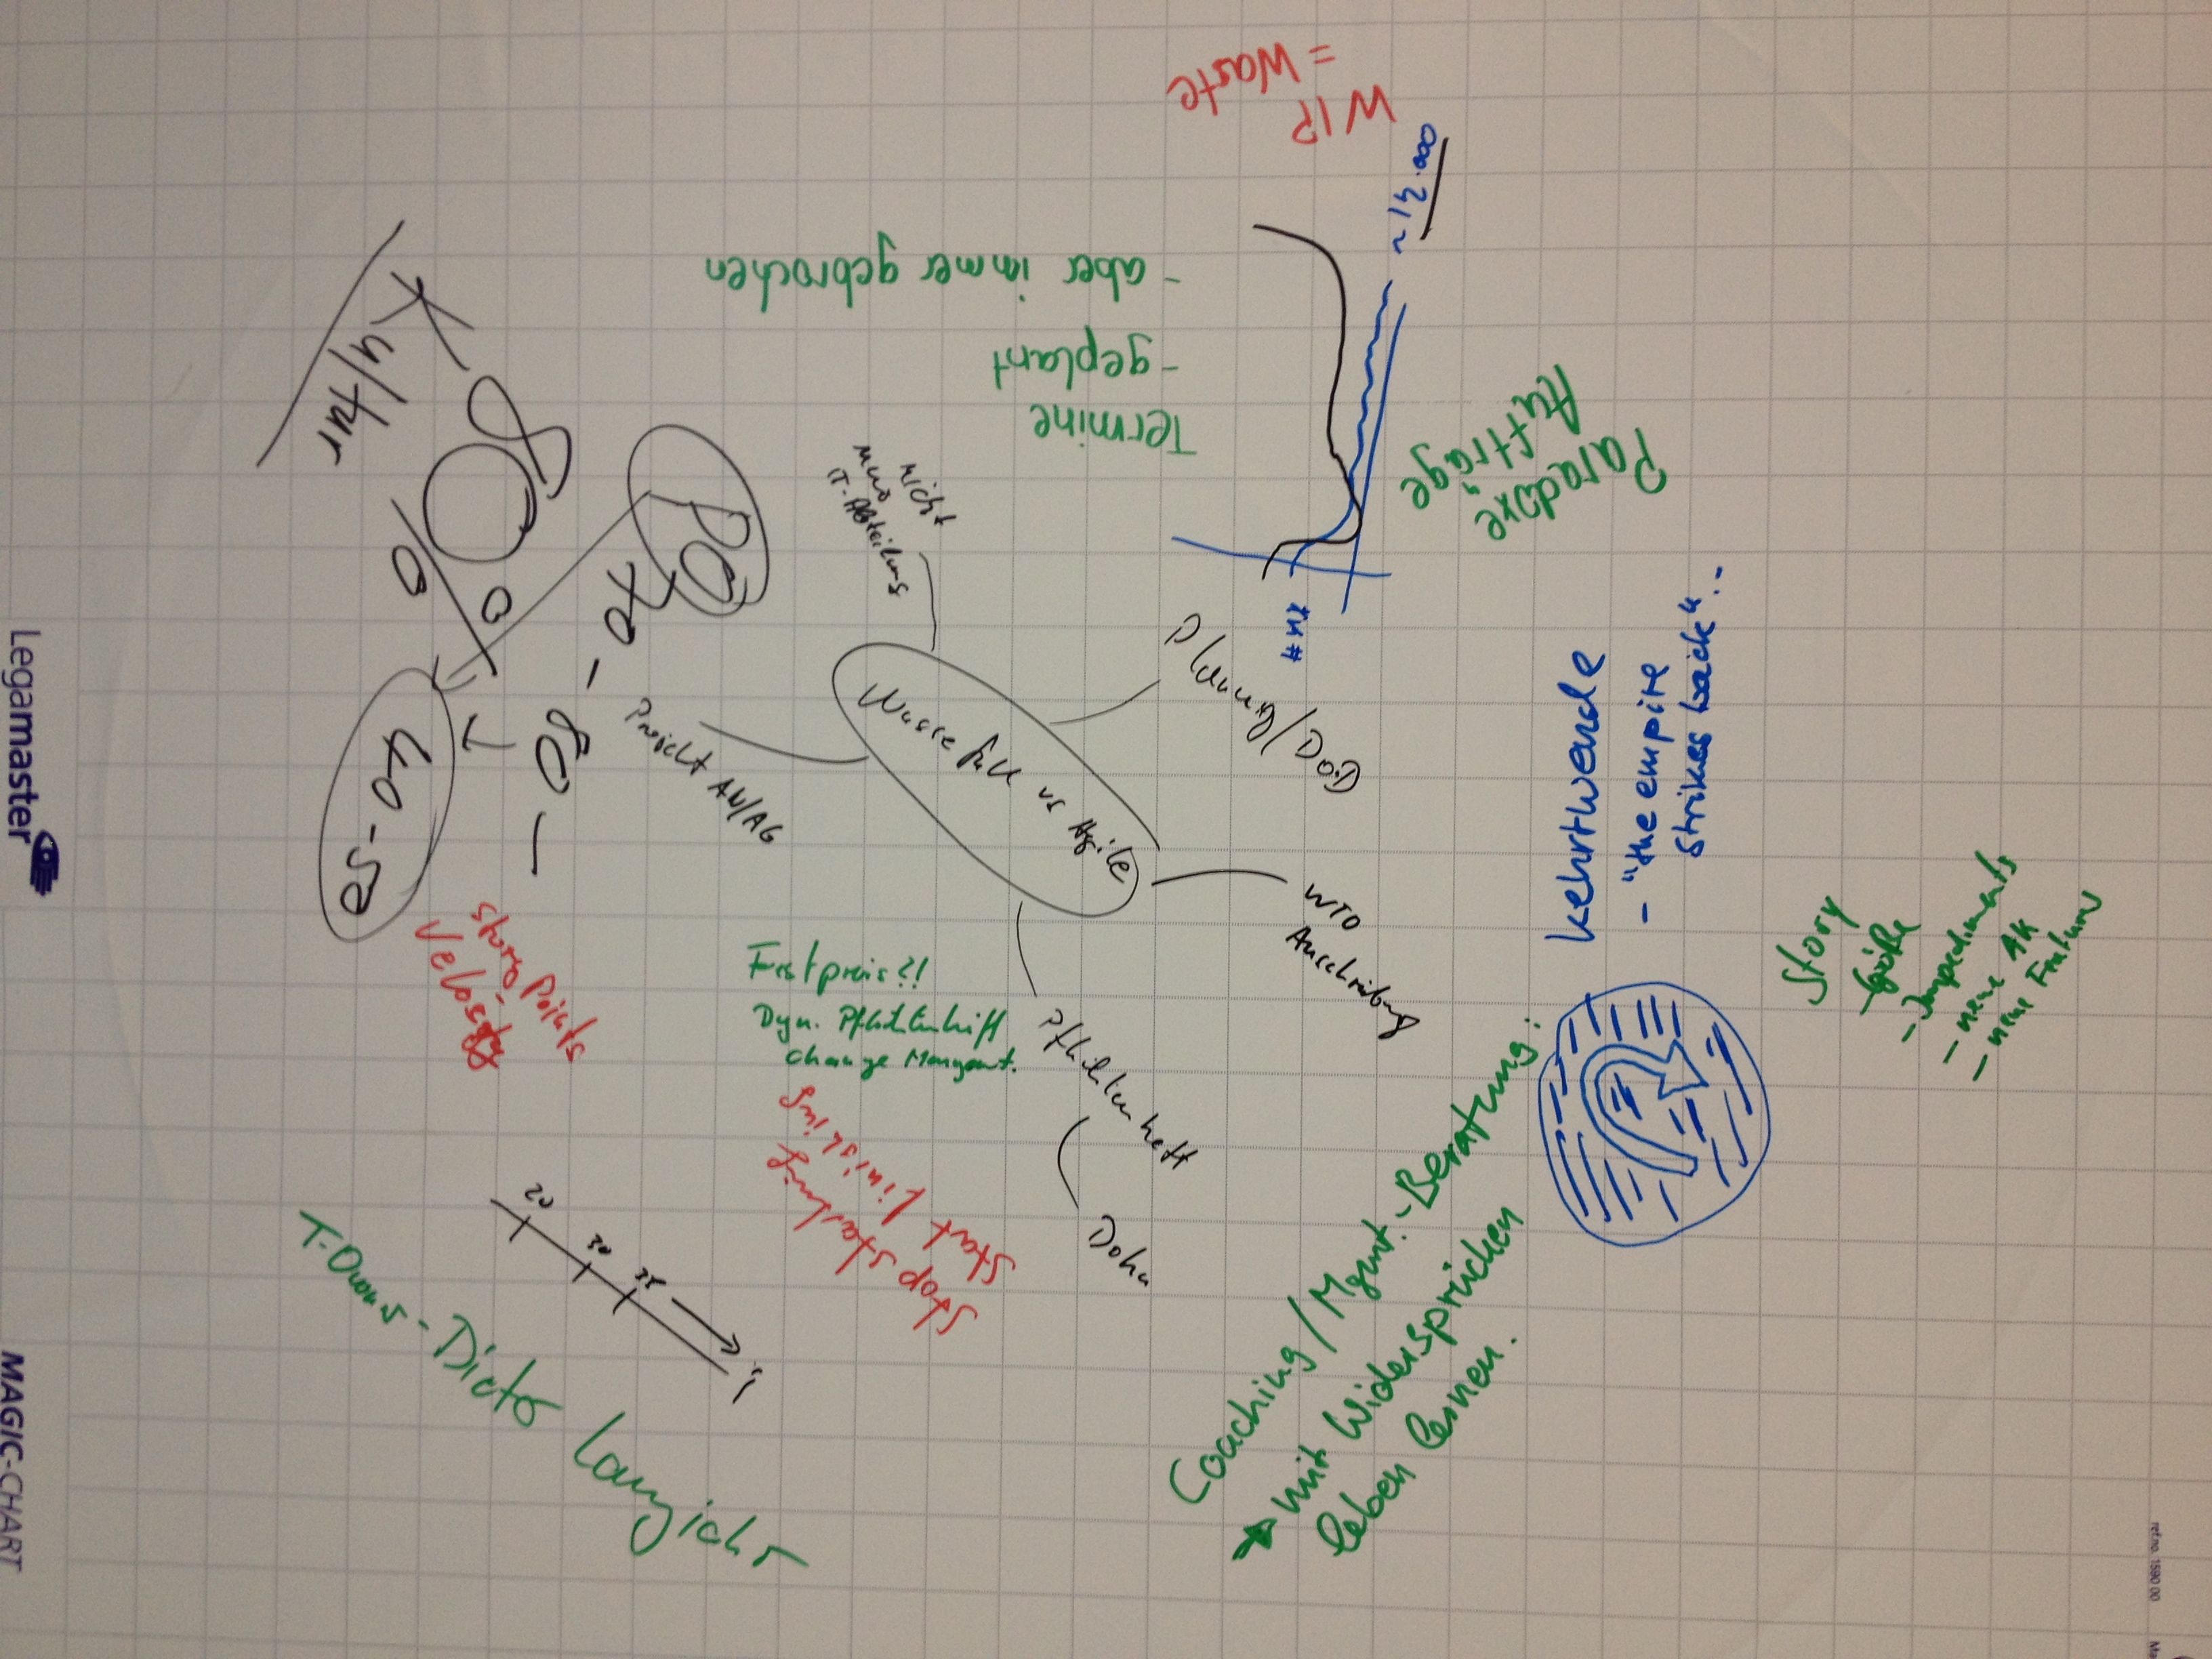 WIP
= Waste
~ 12.000
Termine
- geplant
- aber immer gebrochen
Paradoxe
Aufträge
Kultur
PO
70 - 80 -
40-50
nicht
IT-Abteilung
Planung/DoD
Projekt AN/AG
Wasserfall vs Agile
WTO
Ausschreibung
Pflichtenheft
Doku
Kehrtwende
- "the empire
strikes back"
Story
- Größe
- Impediments
- neue AK
Story Points
Velocity
Festpreis?!
Dyn. Pflichtenheft
Change
Stop starting
Start finishing
20
30
35
Coaching / Mgmt.-Beratung:
mit Widersprüchen
leben lernen.
Legamaster
MAGIC-CHART
ref.no. 1590 00